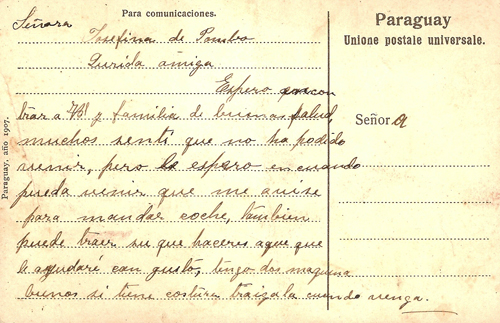 Para comunicaciones.
Paraguay
Unione postale universale.
Señora
Josefina de Pombo
Qurida amiga
Espero encon
trar a Vd y familia de buena salud,
muchos senti que no ha podido
venir, pero la espero en cuando
pueda venir que me avise
para mandar coche, tambien
puede traer su que haceres aque que
le ayudaré con gusto, tengo dos maquina
bunos si tiene costura traigala cuando venga.
Señora
Paraguay, año 1907.